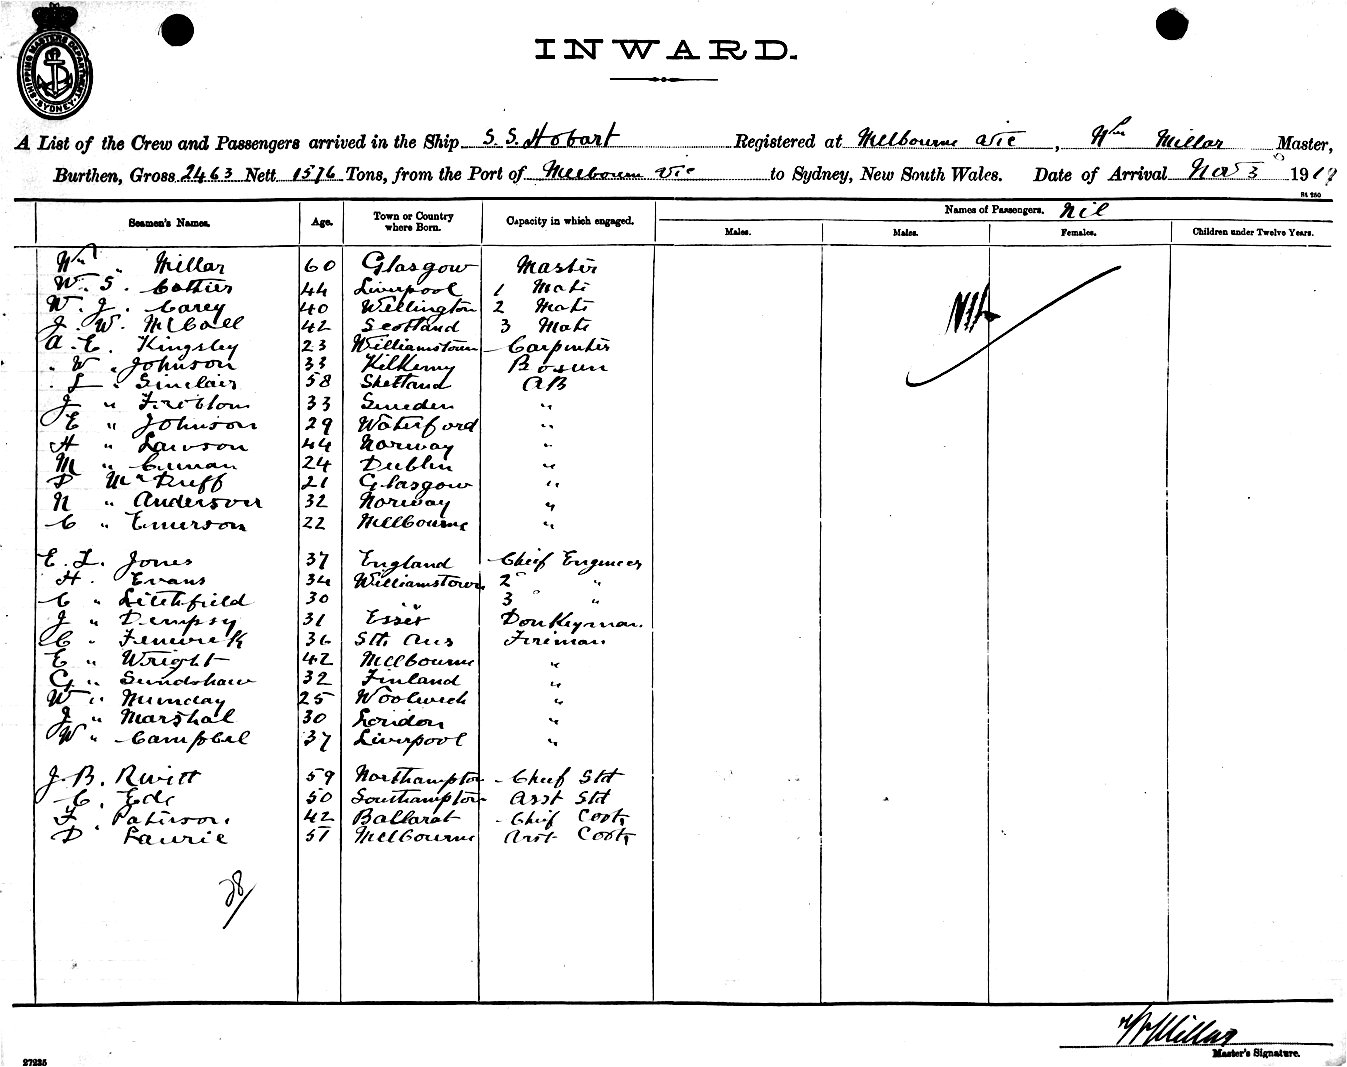 SHIPPING MASTERS DEPARTMENT SYDNEY
INWARD.
A List of the Crew and Passengers arrived in the Ship S.S. Hobart Registered at Melbourne Vic, Wm Millar Master,
Burthen, Gross 2463 Nett 1576 Tons, from the Port of Melbourne Vic to Sydney, New South Wales. Date of Arrival Nov 3 191
84 250
Seamen's Names. Age. Town or Country where Born. Capacity in which engaged. Names of Passengers. Nil
Males. Males. Females. Children under Twelve Years.
Wm " Millar 60 Glasgow Master
W. S. Cottier 44 Liverpool 1 Mate
W. J. Carey 40 Wellington 2 Mate
J. W. McCall 42 Scotland 3 Mate
Nil
A. E. Kingsley 23 Williamstown Carpenter
W. Johnson 33 Kilkenny Bosun
L " Sinclair 58 Shetland AB
J " 33 Sweden "
E " Johnson 29 Waterford "
H " Lawson 44 Norway "
M " 24 Dublin "
D McDuff 21 Glasgow "
N " Anderson 32 Norway "
C " Emerson 22 Melbourne "
E. L. Jones 37 England Chief Engineer
H. Evans 34 Williamstown 2 "
C " Litchfield 30 " 3 " "
J " Dempsy 31 Essex Donkeyman.
C " Fenwick 36 Sth. Aus Fireman
E " Wright 42 Melbourne "
G " Sundshaw 32 Finland "
W " Munday 25 Woolwich "
J " Marshal 30 London "
W " Campbel 37 Liverpool "
J. B. 59 Northampton Chief Std
C. Ede 50 Southampton Asst Std
F. Paterson. 42 Ballarat Chief Cook
D " Laurie 57 Melbourne Asst Cook
28/
Wm Millar
Master's Signature.
27235